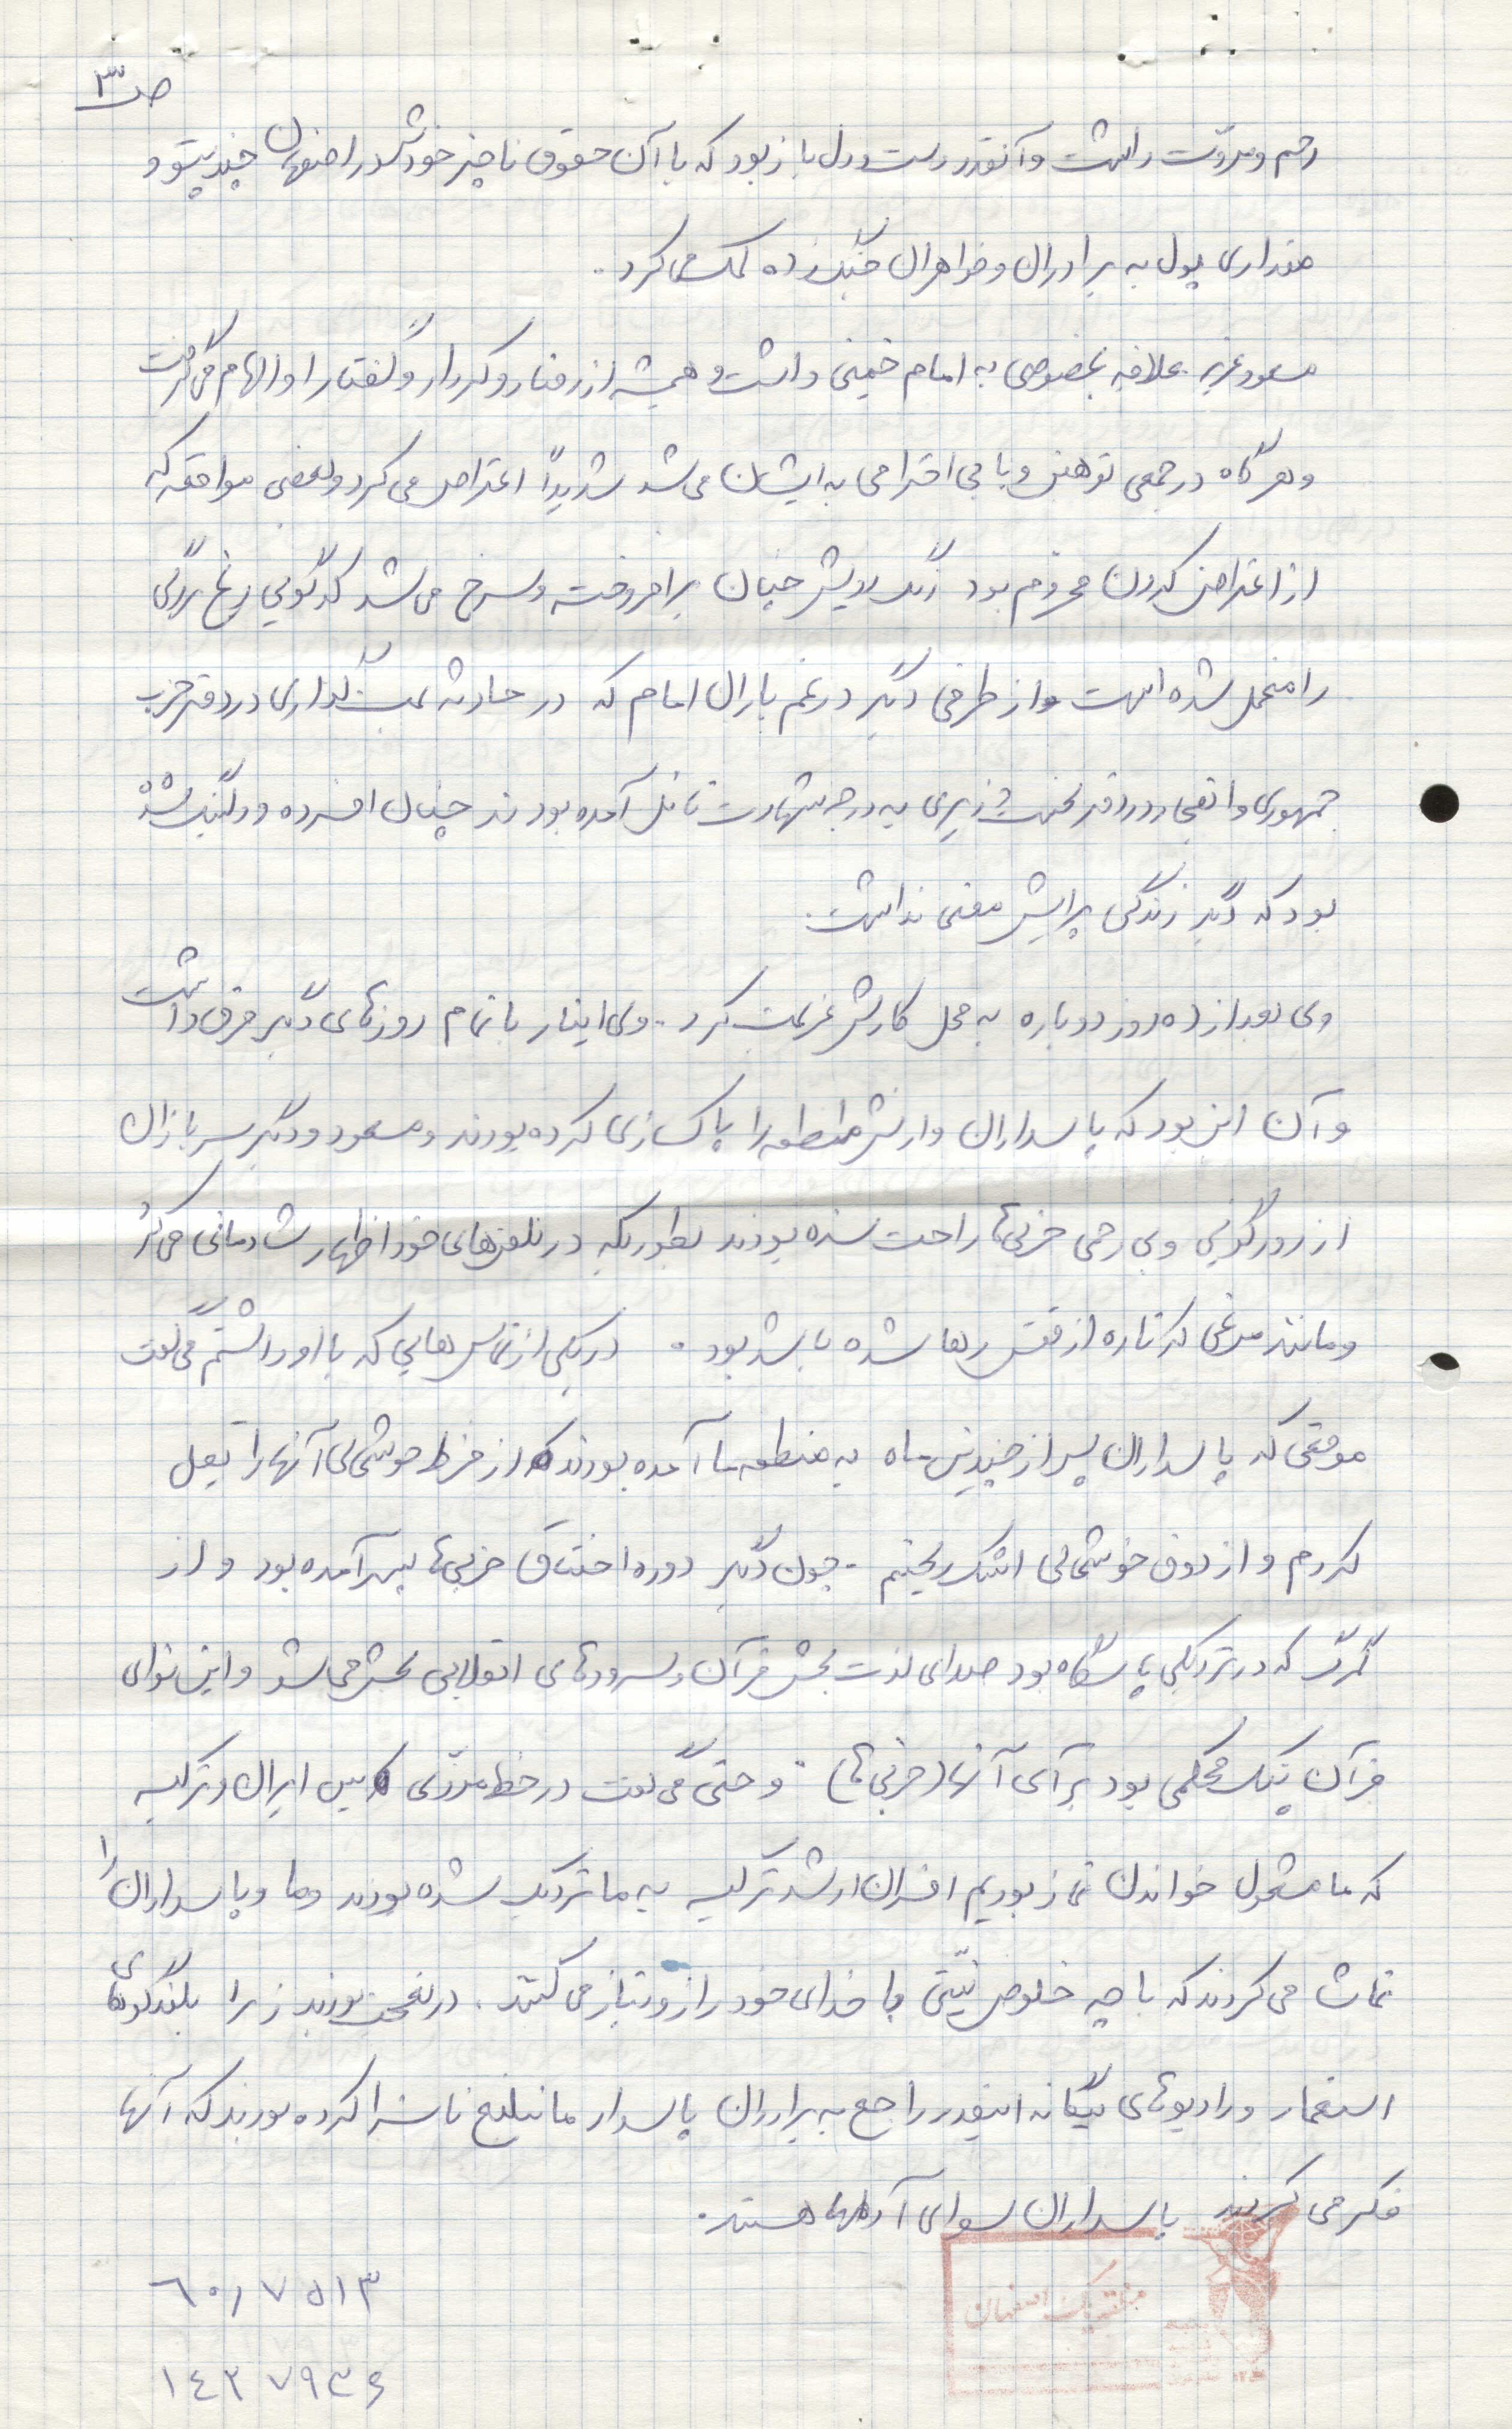 ص ۳
رحم و مروّت داشت و آنقدر دست و دل باز بود که با آن حقوق ناچیز خودش در اصفهان چند پتو و
مقداری پول به برادران و خواهران جنگ زده کمک می کرد.
مسعود عزیز علاقه بخصوصی به امام خمینی داشت و همیشه از رفتار و کردار و گفتار او الهام می گرفت
و هرگاه در جمعی توهین و یا بی احترامی به ایشان می شد شدیداً اعتراض می کرد و بعضی مواقعه که
از اعتراض کردن محروم بود رنگ رویش چنان برافروخته و سرخ می شد که گویی رنج بزرگی
را متحمل شده است و از طرفی دیگر در غم یاران امام که در حادثه بمب گذاری در دفتر حزب
جمهوری و انفجار در دفتر نخست وزیری به درجه شهادت نائل آمده بودند چنان افسرده و دلتنگ شده
بود که دیگر زندگی برایش معنی نداشت.
وی بعد از ده روز دوباره به محل کارش عزیمت کرد. ولی اینبار با تمام روزهای دیگر فرق داشت
و آن این بود که پاسداران و ارتش منطقه را پاک سازی کرده بودند و مسعود و دیگر سربازان
از زورگویی و بی رحمی حزبی‌ها راحت شده بودند بطوریکه در تلفن‌های خود اظهار شادمانی می کرد
و مانند مرغی که تازه از قفس رها شده باشد بود. در یکی از تماس هایی که با او داشتم می گفت
موقعی که پاسداران پس از چندین ماه به منطقه ما آمده بودند از فرط خوشحالی آنها را بغل
کردم و از ذوق خوشحالی اشک ریختیم. چون دیگر دوره اختناق حزبی‌ها بسر آمده بود و از
گمرک که در نزدیکی پاسگاه بود صدای لذت بخش قرآن و سرودهای انقلابی پخش می شد و این نوای
قرآن پتک محکمی بود برای آنها (حزبی‌ها). و حتی می گفت در خط مرزی بین ایران و ترکیه
که ما مشغول خواندن نماز بودیم افسران ارشد ترکیه به ما نزدیک شده بودند و ما و پاسداران را
تماشا می کردند که با چه خلوص نیّتی با خدای خود راز و نیاز می کنند. در تعجب بودند زیرا بلندگوهای
استعمار و رادیوهای بیگانه اینقدر راجع به برادران پاسدار ما تبلیغ ناسزا کرده بودند که آنها
فکر می کردند پاسداران سوای آدمها هستند.
۶۰۱۷۵۱۳
منطقه یک اصفهان
۱۴۲۷۹۳۶